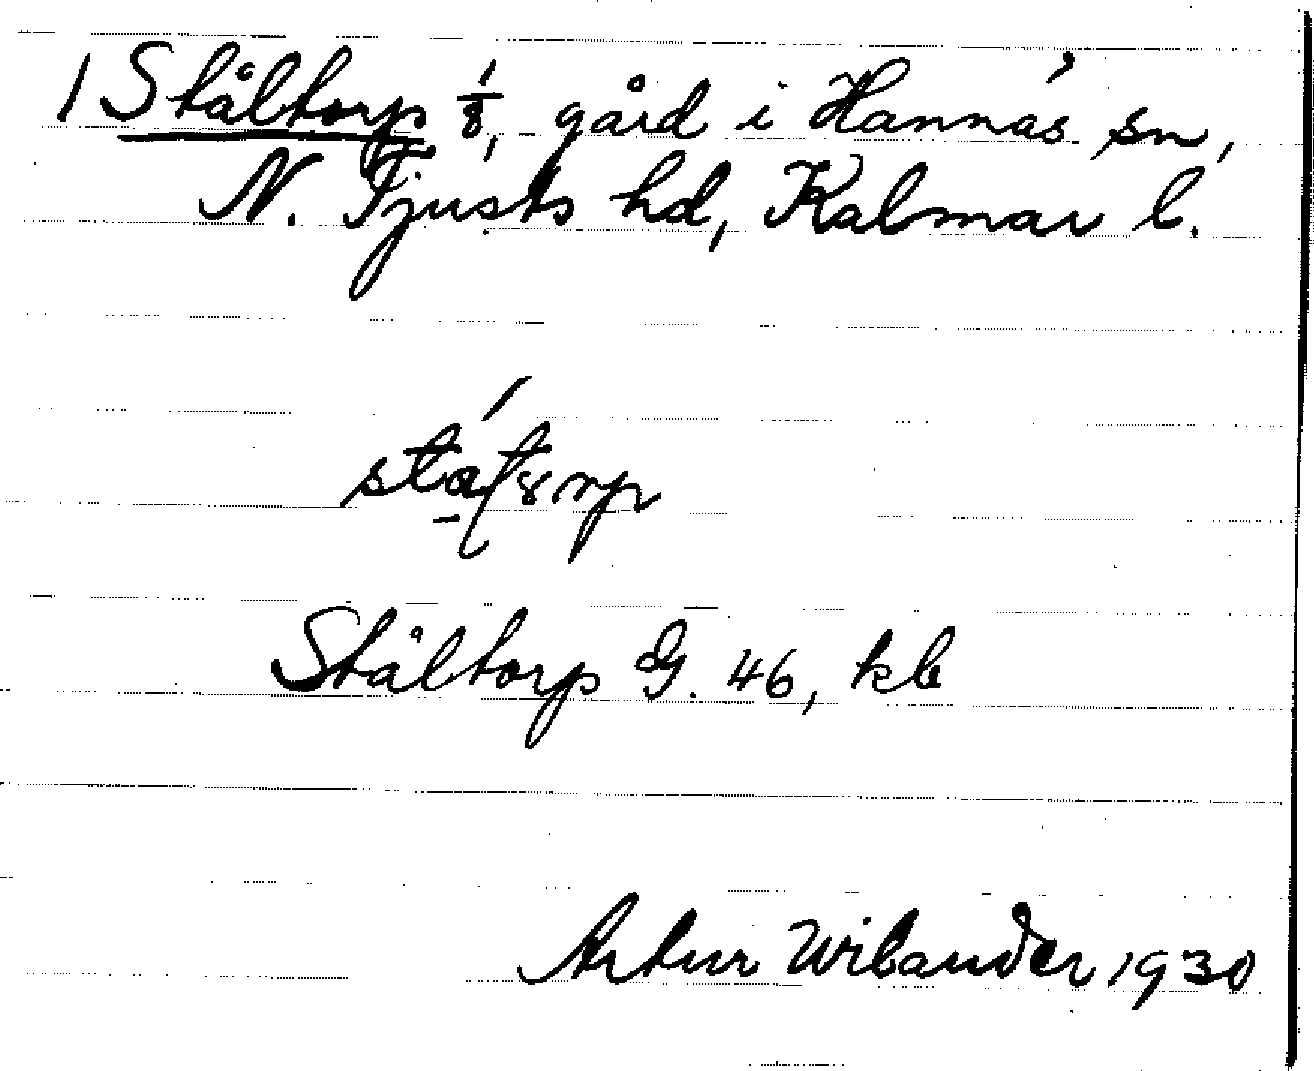 1 Ståltorp 1/8, gård i Hannäs sn,
N. Tjusts hd, Kalmar l.
Ståltorp G. 46, kb
Artur Wilander 1930